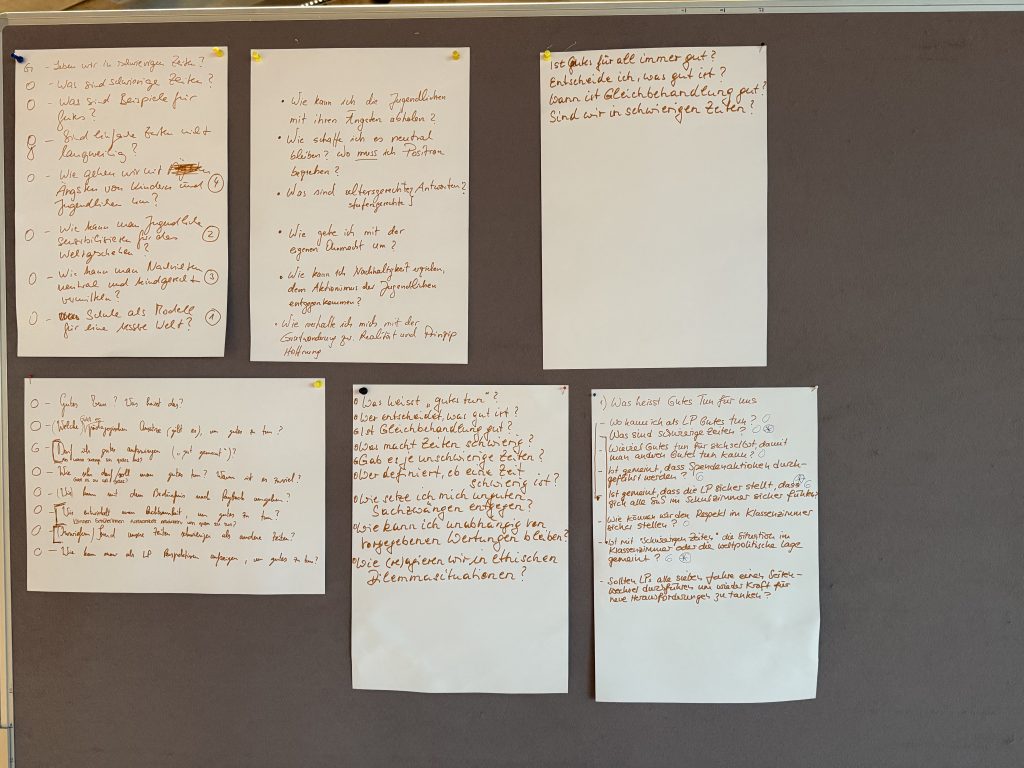 G - Leben wir in schwierigen Zeiten?
O - Was sind schwierige Zeiten?
O - Was sind Beispiele für
gutes?
O - Sind einfache Zeiten nicht
langweilig?
O - Wie gehen wir mit
Ängsten von Kindern und ④
Jugendlichen um?
O - Wie kann man Jugendliche
sensibilisieren für das ②
Weltgeschehen?
O - Wie kann man Nachrichten ③
neutral und kindgerecht
vermitteln?
O - Schule als Modell ①
für eine bessere Welt?
• Wie kann ich die Jugendlichen
mit ihren Ängsten abholen?
• Wie schaffe ich es neutral
bleiben? Wo muss ich Position
beziehen?
• Was sind altersgerechte Antworten?
stufengerechte
• Wie gehe ich mit der
eigenen Ohnmacht um?
• Wie kann ich Nachhaltigkeit
dem Aktionismus der Jugendlichen
entgegenkommen?
• Wie verhalte ich mich mit der
Gratwanderung zw. Realität und Prinzip
Hoffnung
Ist Gutes für all immer gut?
Entscheide ich, was gut ist?
Wann ist Gleichbehandlung gut?
Sind wir in schwierigen Zeiten?
O - Gutes Tun? Was heisst das?
O - (Welche) pädagogischen Ansätze (gibt es), um gutes zu tun?
G - Darf ich gutes aufzwingen („gut gemeint")?
O - Wie sehr darf/soll man gutes tun? Wann ist es zuviel?
O - (Wie) kann mit dem Bedürfnis nach umgehen?
O - Wie entwickelt man Achtsamkeit, um gutes zu tun?
O - (Inwiefern) sind unsere Zeiten schwieriger als andere Zeiten?
O - Wie kann man als LP Perspektiven aufzeigen, um gutes zu tun?
O Was heisst „gutes tun"?
O Wer entscheidet, was gut ist?
G Ist Gleichbehandlung gut?
O Was macht Zeiten schwierig?
G Gab es je unschwierige Zeiten?
O Wer definiert, ob eine Zeit
schwierig ist?
O Wie setze ich mich unguten
Sachzwängen entgegen?
O Wie kann ich unabhängig von
vorgegebenen Wertungen bleiben?
O Wie (re)agieren wir in ethischen
Dilemmasituationen?
1) Was heisst Gutes Tun für uns
- Wo kann ich als LP Gutes tun? O
- Was sind schwierige Zeiten? O
- Wieviel Gutes tun für sich selbst, damit
man andern Gutes tun kann? O
- Ist gemeint, dass Spendenaktionen durch-
geführt werden? G
- Ist gemeint, dass die LP sicher stellt, dass
sich alle SuS im Schulzimmer sicher fühlen? G
- Wie können wir den Respekt im Klassenzimmer
sicher stellen? O
- Ist mit "schwierigen Zeiten" die Situation im
Klassenzimmer oder die weltpolitische Lage
gemeint? G
- Sollten LPs alle sieben Jahre einen Seiten-
wechsel durchführen um wieder Kraft für
neue Herausforderungen zu tanken?